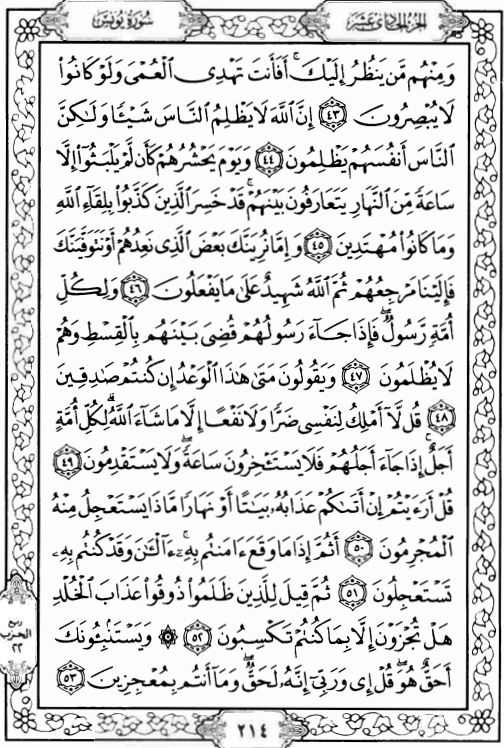 الجزء الحادي عشر
سُورَةُ يُونُسَ
وَمِنْهُم مَّن يَنظُرُ إِلَيْكَ ۚ أَفَأَنتَ تَهْدِى ٱلْعُمْىَ وَلَوْ كَانُوا۟
لَا يُبْصِرُونَ ٤٣ إِنَّ ٱللَّهَ لَا يَظْلِمُ ٱلنَّاسَ شَيْـًٔا وَلَـٰكِنَّ
ٱلنَّاسَ أَنفُسَهُمْ يَظْلِمُونَ ٤٤ وَيَوْمَ يَحْشُرُهُمْ كَأَن لَّمْ يَلْبَثُوٓا۟ إِلَّا
سَاعَةً مِّنَ ٱلنَّهَارِ يَتَعَارَفُونَ بَيْنَهُمْ ۚ قَدْ خَسِرَ ٱلَّذِينَ كَذَّبُوا۟ بِلِقَآءِ ٱللَّهِ
وَمَا كَانُوا۟ مُهْتَدِينَ ٤٥ وَإِمَّا نُرِيَنَّكَ بَعْضَ ٱلَّذِى نَعِدُهُمْ أَوْ نَتَوَفَّيَنَّكَ
فَإِلَيْنَا مَرْجِعُهُمْ ثُمَّ ٱللَّهُ شَهِيدٌ عَلَىٰ مَا يَفْعَلُونَ ٤٦ وَلِكُلِّ
أُمَّةٍ رَّسُولٌ ۖ فَإِذَا جَآءَ رَسُولُهُمْ قُضِىَ بَيْنَهُم بِٱلْقِسْطِ وَهُمْ
لَا يُظْلَمُونَ ٤٧ وَيَقُولُونَ مَتَىٰ هَـٰذَا ٱلْوَعْدُ إِن كُنتُمْ صَـٰدِقِينَ
٤٨ قُل لَّآ أَمْلِكُ لِنَفْسِى ضَرًّا وَلَا نَفْعًا إِلَّا مَا شَآءَ ٱللَّهُ ۗ لِكُلِّ أُمَّةٍ
أَجَلٌ ۚ إِذَا جَآءَ أَجَلُهُمْ فَلَا يَسْتَـْٔخِرُونَ سَاعَةً ۖ وَلَا يَسْتَقْدِمُونَ ٤٩
قُلْ أَرَءَيْتُمْ إِنْ أَتَىٰكُمْ عَذَابُهُۥ بَيَـٰتًا أَوْ نَهَارًا مَّاذَا يَسْتَعْجِلُ مِنْهُ
ٱلْمُجْرِمُونَ ٥٠ أَثُمَّ إِذَا مَا وَقَعَ ءَامَنتُم بِهِۦٓ ۚ ءَآلْـَٔـٰنَ وَقَدْ كُنتُم بِهِۦ
تَسْتَعْجِلُونَ ٥١ ثُمَّ قِيلَ لِلَّذِينَ ظَلَمُوا۟ ذُوقُوا۟ عَذَابَ ٱلْخُلْدِ
هَلْ تُجْزَوْنَ إِلَّا بِمَا كُنتُمْ تَكْسِبُونَ ٥٢ ۞ وَيَسْتَنۢبِـُٔونَكَ
أَحَقٌّ هُوَ ۖ قُلْ إِى وَرَبِّىٓ إِنَّهُۥ لَحَقٌّ ۖ وَمَآ أَنتُم بِمُعْجِزِينَ ٥٣
ربع
الحزب
٢٢
٢١٤